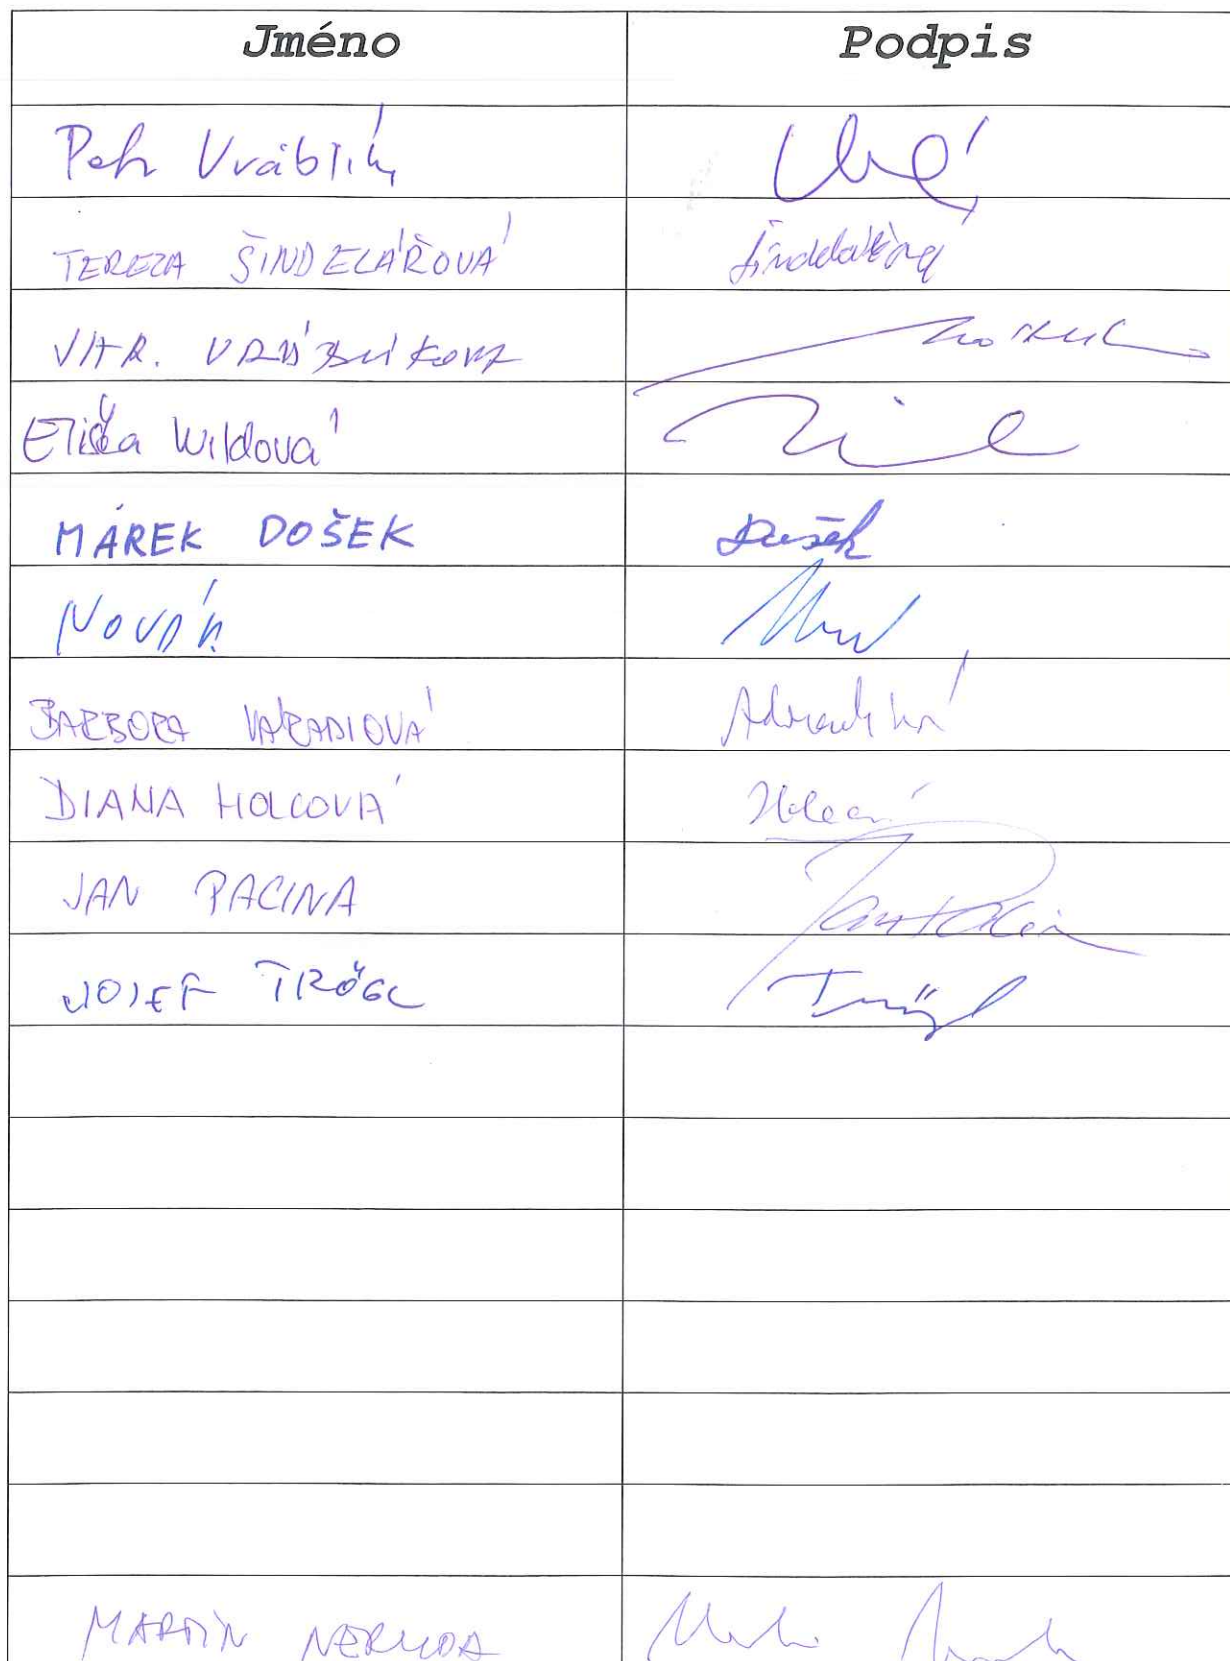 Jméno Podpis
Petr Vráblík
TEREZA ŠINDELÁŘOVÁ Šindelářová
VRÁBLÍKOVÁ
Eliška Wildová
MAREK DOŠEK Došek
NOVÁK
BARBORA VARADIOVÁ
DIANA HOLCOVÁ Holcová
JAN PACINA Jan Pacina
JOSEF TRÖGL Trögl
MARTIN NERUDA